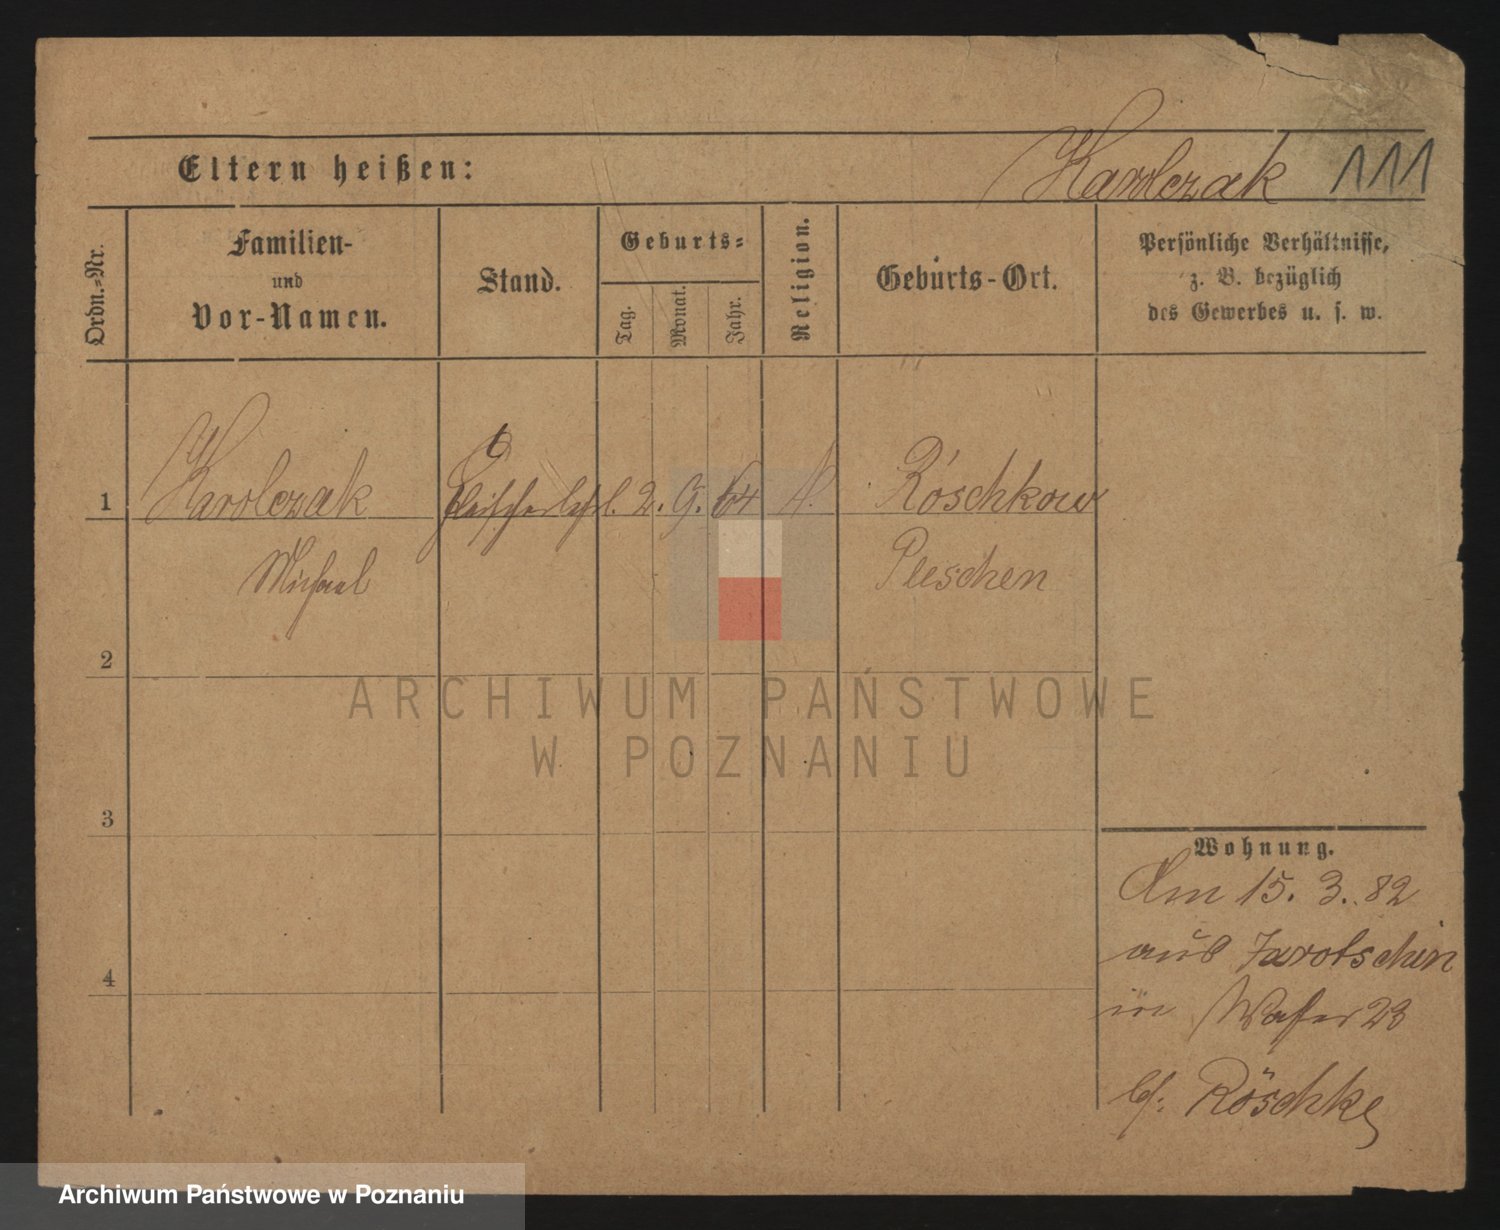 Eltern heißen:
Karolczak 111
Ordn.-Nr.
Familien-
und
Vor-Namen.
Stand.
Geburts-
Tag.
Monat.
Jahr.
Religion.
Geburts-Ort.
Persönliche Verhältnisse,
z. B. bezüglich
des Gewerbes u. s. w.
1 Karolczak Fleischerlehrl. 2. 9. 64 Röschkow
Michael Pleschen
2
3
4
ARCHIWUM PAŃSTWOWE
W POZNANIU
Wohnung.
Am 15. 3. 82
aus Jarotschin
in Wasser 23
bei Röschke
Archiwum Państwowe w Poznaniu